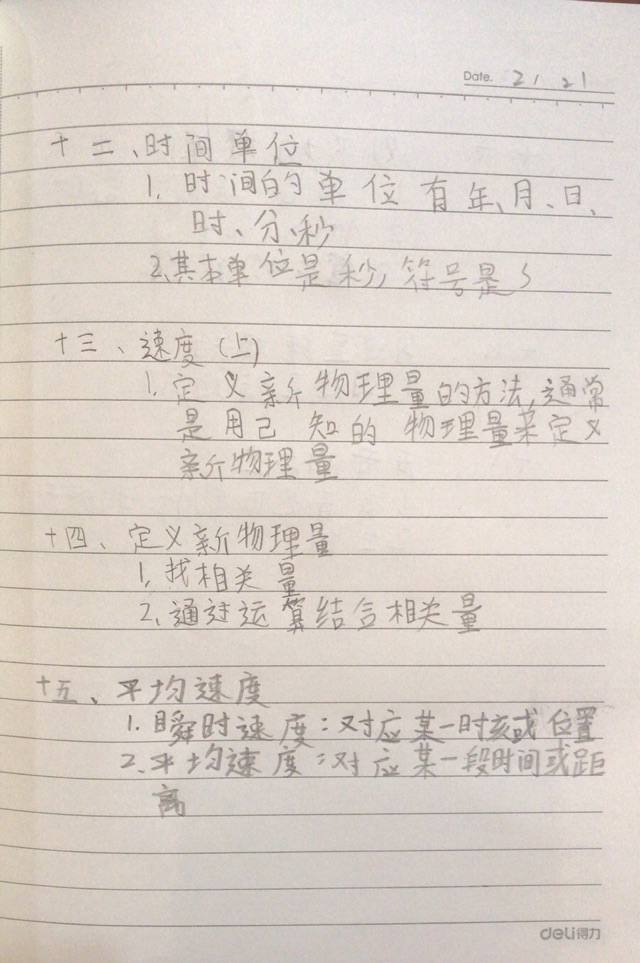 Date. 21 21
十二、时间单位
1. 时间的单位有年、月、日、
时、分、秒
2.其本单位是秒,符号是s
十三、速度(上)
1.定义新物理量的方法,通常
是用已知的物理量来定义
新物理量
十四、定义新物理量
1.找相关量
2.通过运算结合相关量
十五、平均速度
1.瞬时速度:对应某一时刻或位置
2.平均速度:对应某一段时间或距
离
deli得力